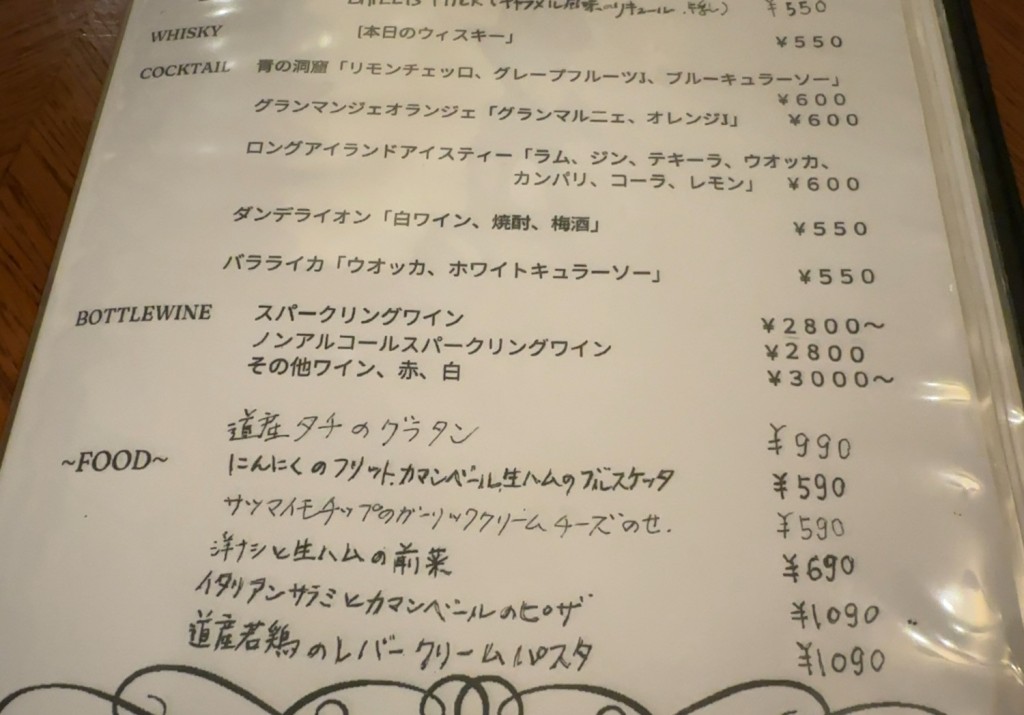 ¥550
WHISKY [本日のウィスキー」 ¥550
COCKTAIL 青の洞窟「リモンチェッロ、グレープフルーツJ、ブルーキュラーソー」
¥600
グランマンジェオランジェ「グランマルニェ、オレンジJ」 ¥600
ロングアイランドアイスティー「ラム、ジン、テキーラ、ウオッカ、
カンパリ、コーラ、レモン」 ¥600
ダンデライオン「白ワイン、焼酎、梅酒」 ¥550
バラライカ「ウオッカ、ホワイトキュラーソー」 ¥550
BOTTLEWINE スパークリングワイン ¥2800～
ノンアルコールスパークリングワイン ¥2800
その他ワイン、赤、白 ¥3000～
道産タチのグラタン ¥990
~FOOD~ にんにくのフリット、カマンベール、生ハムのブルスケッタ ¥590
サツマイモチップのガーリッククリームチーズのせ. ¥590
洋ナシと生ハムの前菜 ¥690
イタリアンサラミとカマンベールのピザ ¥1090
道産若鶏のレバークリームパスタ ¥1090